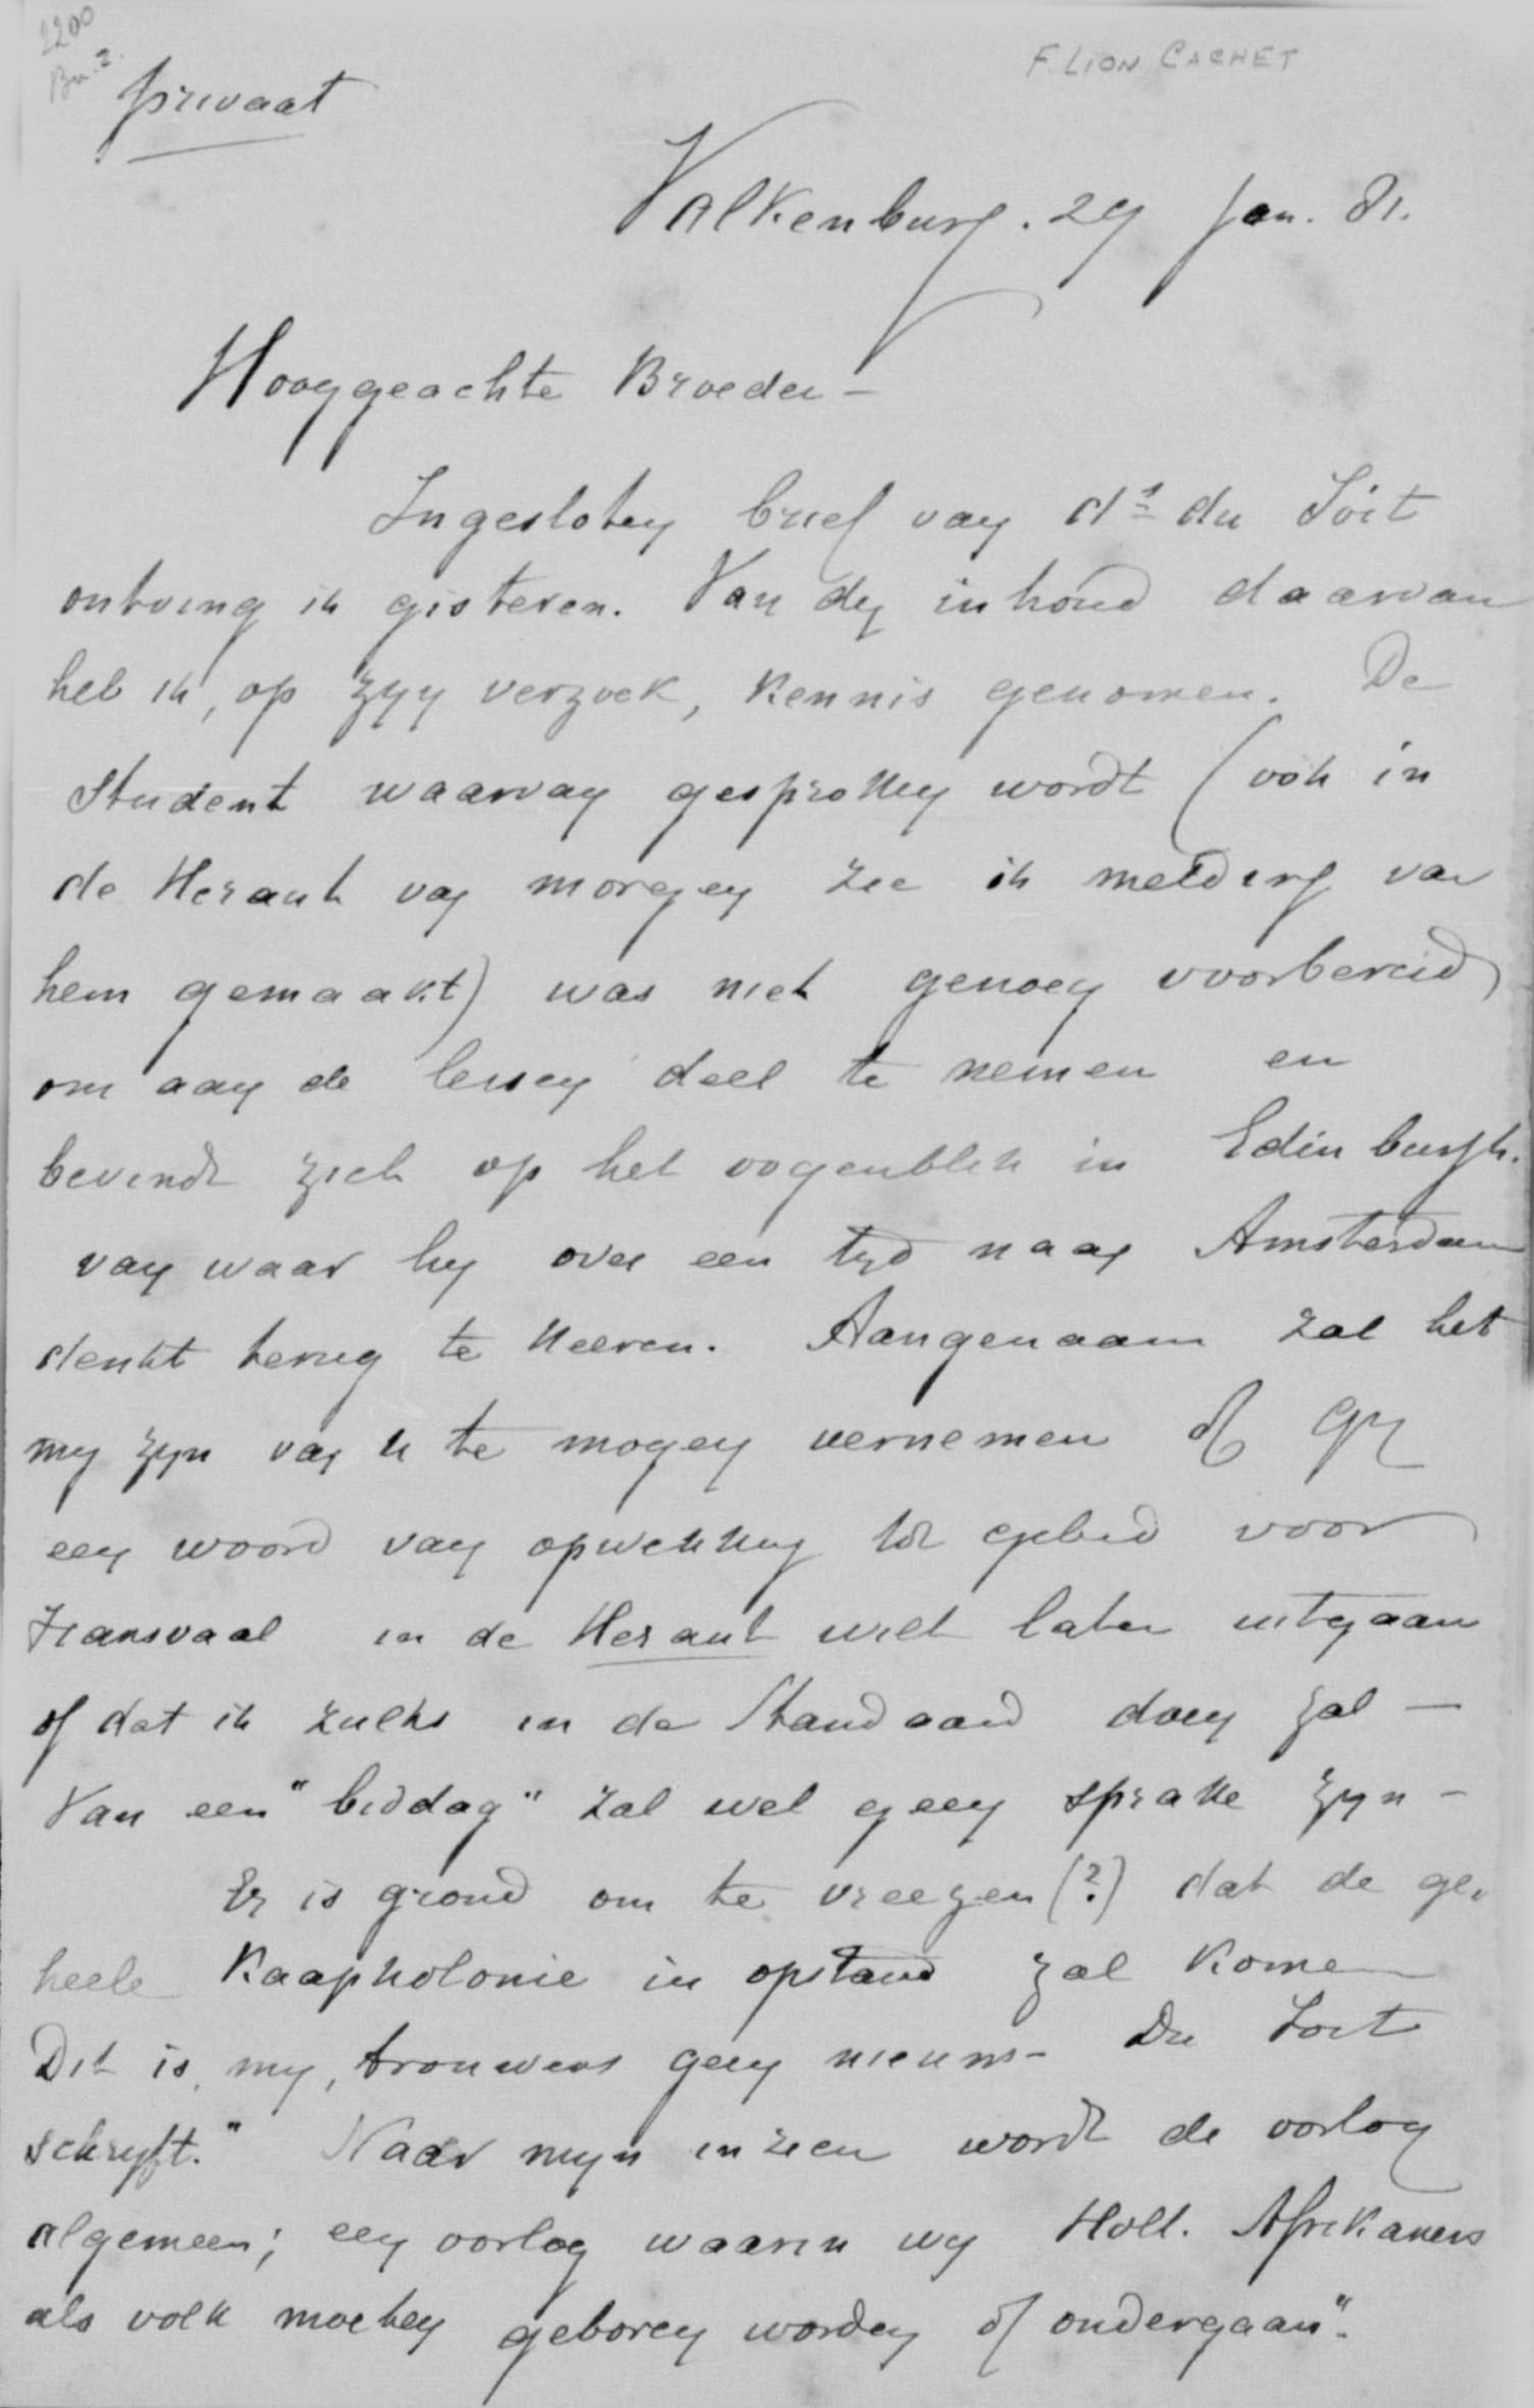 2200
Bu. 2.
F. LION CACHET
privaat
Valkenburg. 29 Jan. 81.
Hooggeachte Broeder –
Ingesloten brief van ds du Toit
ontving ik gisteren. Van den inhoud daarvan
heb ik, op zyn verzoek, kennis genomen. De
student waarvan gesproken wordt (ook in
de Heraut van morgen zie ik melding van
hem gemaakt) was niet genoeg voorbereid
om aan de lessen deel te nemen en
bevindt zich op het oogenblik in Edinburgh.
van waar hy over een tyd naar Amsterdam
denkt terug te keeren. Aangenaam zal het
my zyn van U te mogen vernemen of Gy
een woord van opwekking tot gebed voor
Transvaal in de Heraut wilt laten uitgaan
of dat ik zulks in de Standaard doen zal —
Van een "biddag" zal wel geen sprake zyn –
Er is grond om te vreezen (?) dat de ge-
heele Kaapkolonie in opstand zal komen
Dit is, my, trouwens geen nieuws – Du Toit
schryft. "Naar myn inzien wordt de oorlog
algemeen; een oorlog waarin wy Holl. Afrikaners
als volk moeten geboren worden of ondergaan".